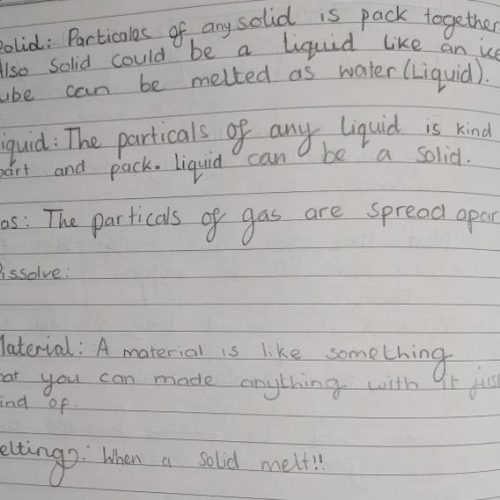 olid: Particalos of any solid is pack together
Also Solid could be a liquid like an ice
ube can be melted as water (Liquid).
iquid: The particals of any liquid is kind
part and pack. liquid can be a solid.
as: The particals of gas are spread apar
issolve:
Material: A material is like something
hat you can made anything with it just
ind of.
elting: When a solid melt!!